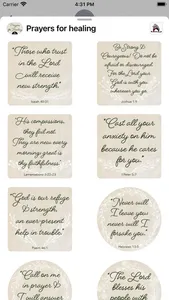 4:31 PM
Prayers for healing
Those who trust
in the Lord
will receive
new strength"
Isaiah 40:31
Be Strong &
Courageous! Do not be
afraid or discouraged.
For the Lord your
God is with you
wherever you go.
Joshua 1:9
His compassions,
they fail not.
They are new every
morning; great is
thy faithfulness"
Lamentations 3:22-23
"Cast all your
anxiety on him
because he cares
for you."
1 Peter 5:7
"God is our refuge
& strength,
an ever-present
help in trouble"
Psalm 46:1
"Never will
I leave you;
never will I
forsake you."
Hebrews 13:5
"Call on me
in prayer &
I will answer
"The Lord
blesses his
people with